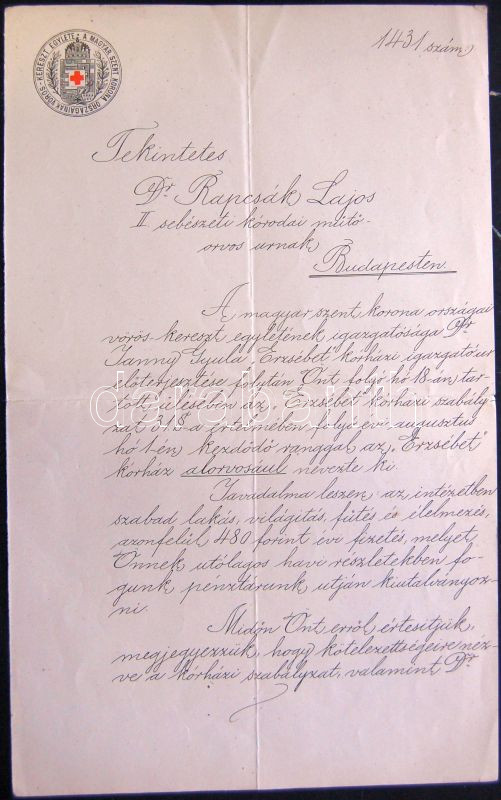 A MAGYAR SZENT KORONA ORSZÁGAINAK VÖRÖS-KERESZT EGYLETE
1431 szám
Tekintetes
Dr. Rapcsák Lajos
II sebészeti kórodai műtő-
orvos urnak
Budapesten.
A magyar szent korona országai
vörös-kereszt egyletének igazgatósága Dr
Janny Gyula „Erzsébet" kórházi igazgató úr
előterjesztése folytán Önt folyó hó 18-án tar-
tott ülésében az „Erzsébet" kórházi szabály-
zat 3/8.-a értelmében folyó évi augusztus
hó 1-én kezdődő ranggal az „Erzsébet"
kórház alorvosául nevezte ki.
Javadalma leszen az intézetben
szabad lakás, világítás, fűtés és élelmezés,
azonfelül 480 forint évi fizetés, melyet
Önnek utólagos havi részletekben fo-
gunk pénztárunk utján kiutalványoz-
ni.
Midőn Önt erről értesítjük,
megjegyezzük, hogy kötelezettségeire néz-
ve a kórházi szabályzat, valamint Dr
darabanth